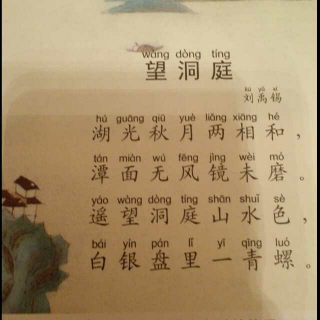 wàng dòng tíng
望洞庭
liú yǔ xī
刘禹锡
hú guāng qiū yuè liǎng xiāng hé
湖光秋月两相和，
tán miàn wú fēng jìng wèi mó
潭面无风镜未磨。
yáo wàng dòng tíng shān shuǐ sè
遥望洞庭山水色，
bái yín pán lǐ yī qīng luó
白银盘里一青螺。